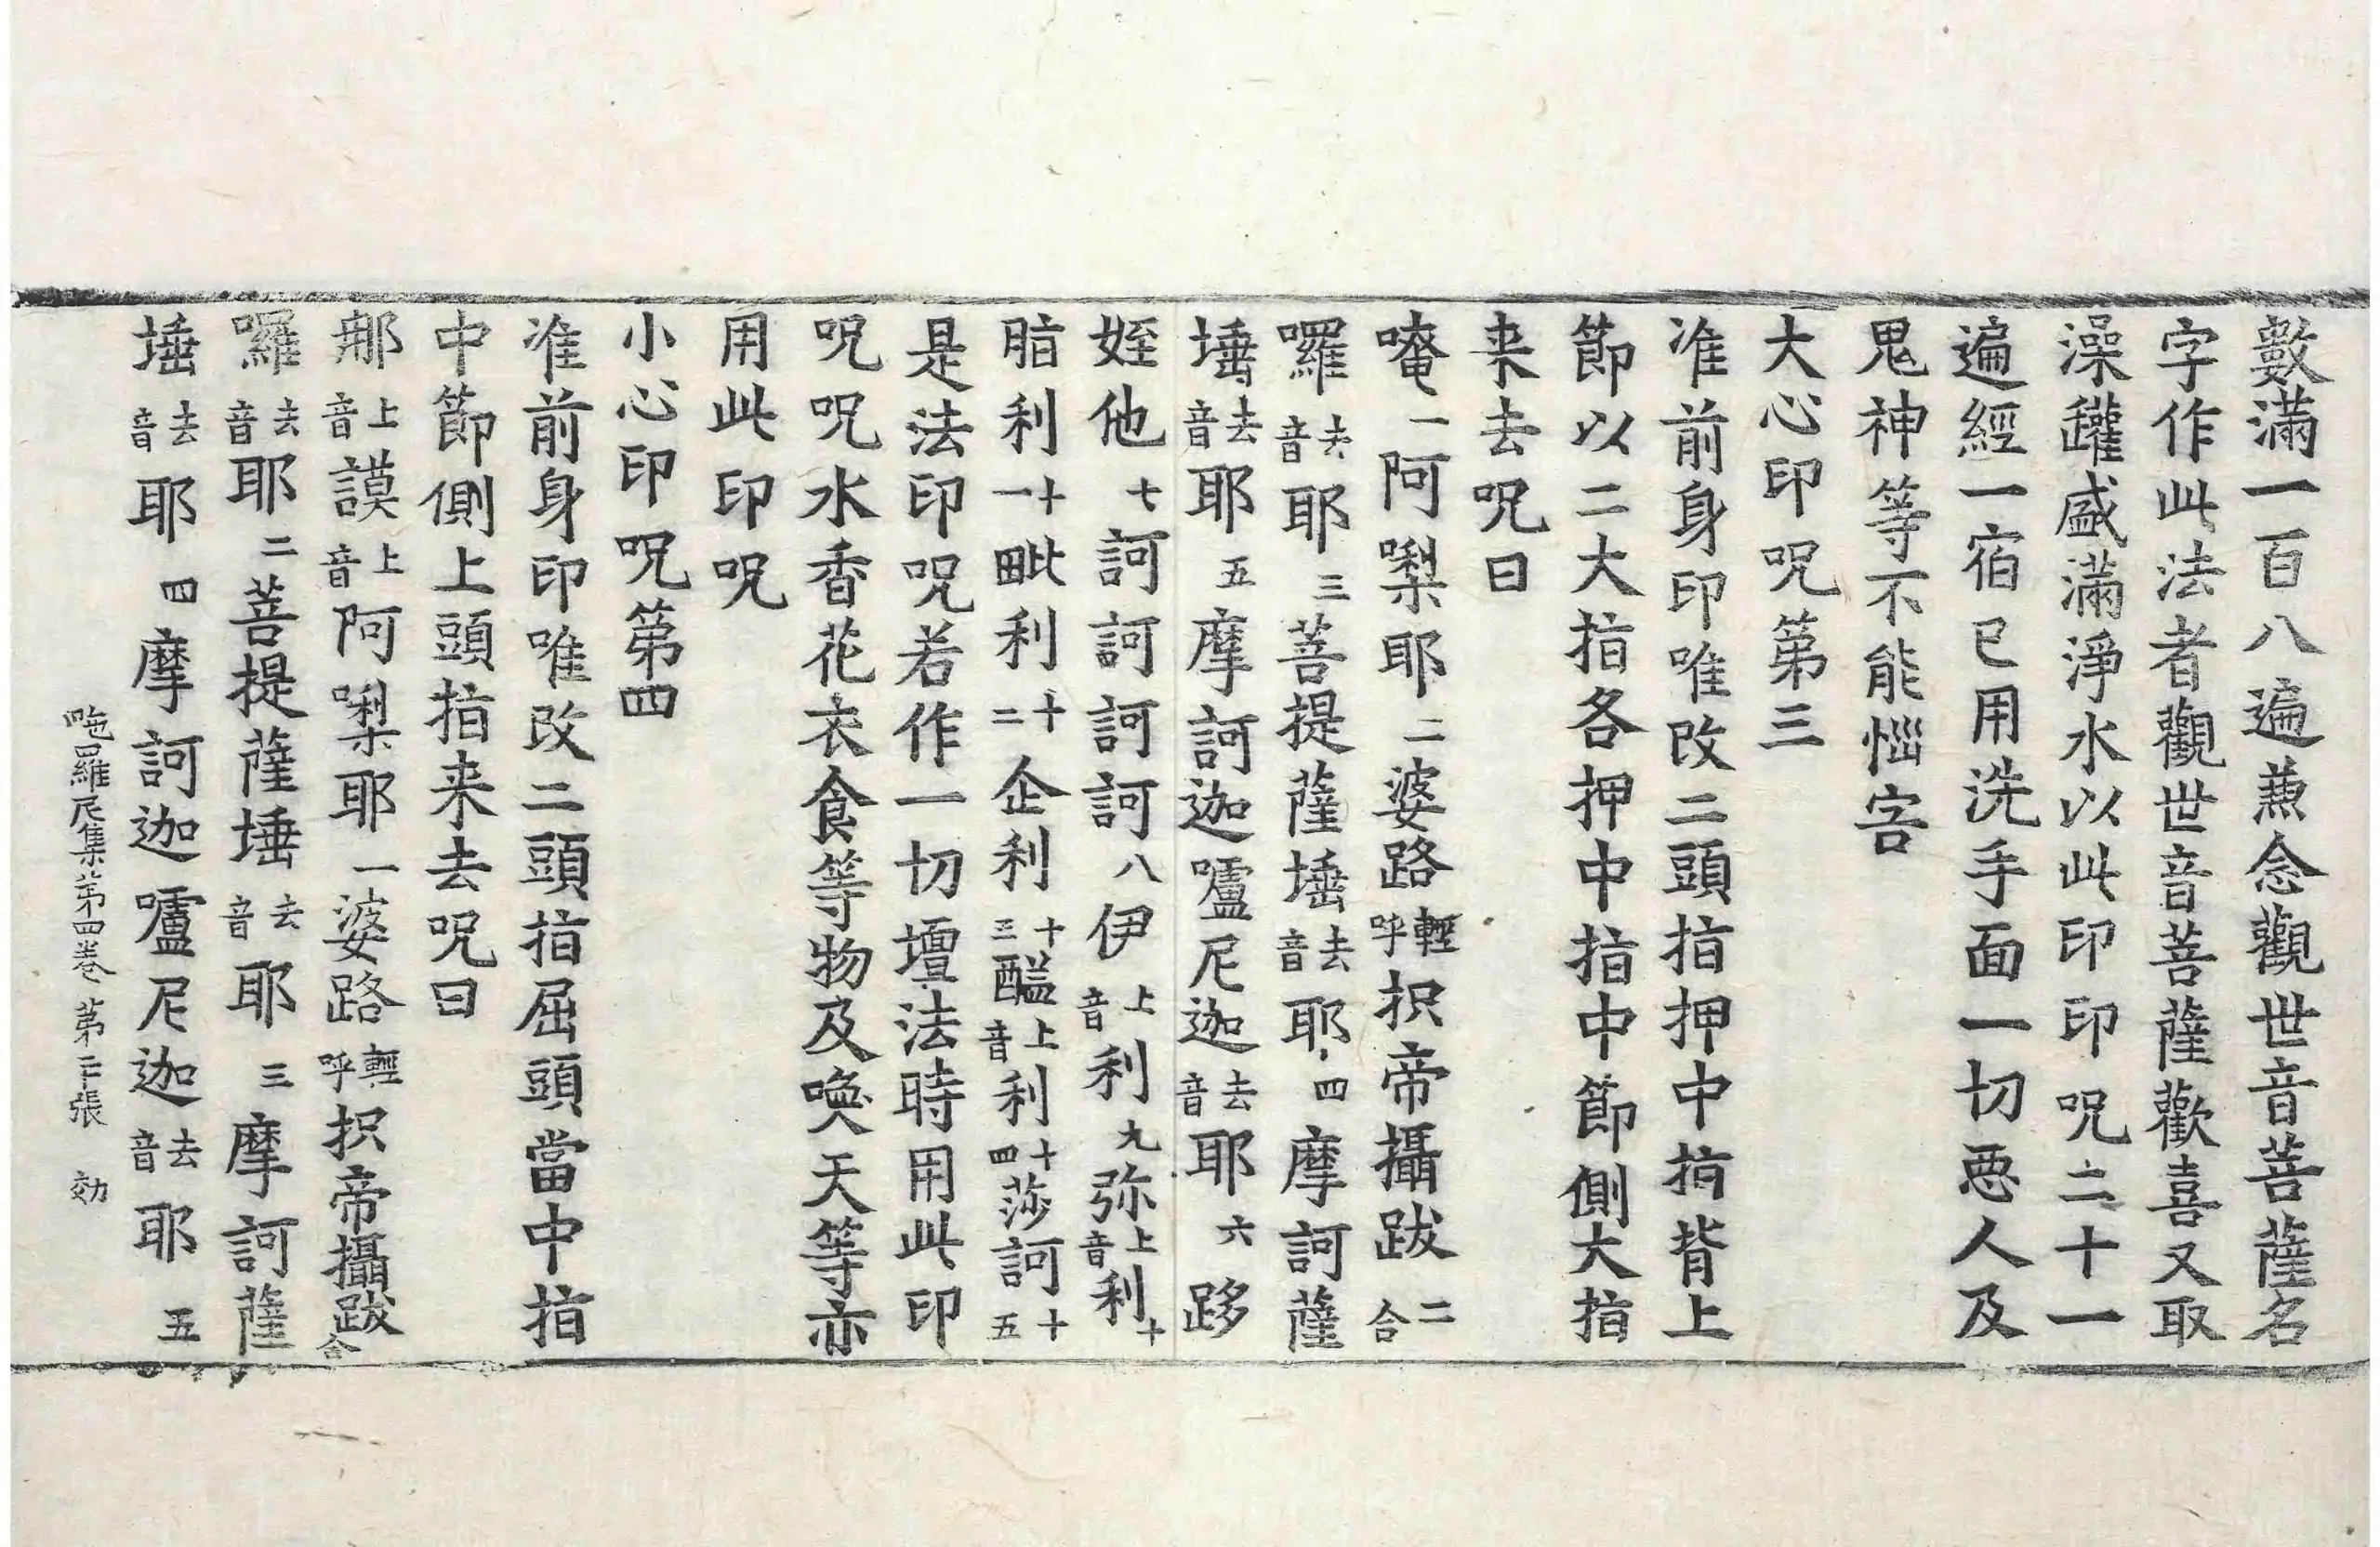 數滿一百八遍蕪念觀世音菩薩名
字作此法者觀世音菩薩歡喜又取
澡罐盛滿淨水以此印印呪二十一
遍經一宿已用洗手面一切惡人及
鬼神等不能惱害
大心印呪第三
准前身印唯改二頭指押中指背上
節以二大指各押中指中節側大指
来去呪曰
唵一阿唎耶二婆路輕呼枳帝攝跋二合
囉去音耶三菩提薩埵去音耶四摩訶薩
埵去音耶五摩訶迦嚧尼迦去音耶六跢
姪他七訶訶訶訶八伊上音利九弥上音利十
脂利十一毗利十二企利十三醯上音利十四莎訶十五
是法印呪若作一切壇法時用此印
呪呪水香花衣食等物及喚天等亦
用此印呪
小心印呪第四
准前身印唯改二頭指屈頭當中指
中節側上頭指来去呪曰
那上音謨上音阿唎耶一婆路輕呼枳帝攝跋合
囉去音耶二菩提薩埵去音耶三摩訶薩
埵去音耶四摩訶迦嚧尼迦去音耶五
陁羅尼集第四卷 第二十張 効